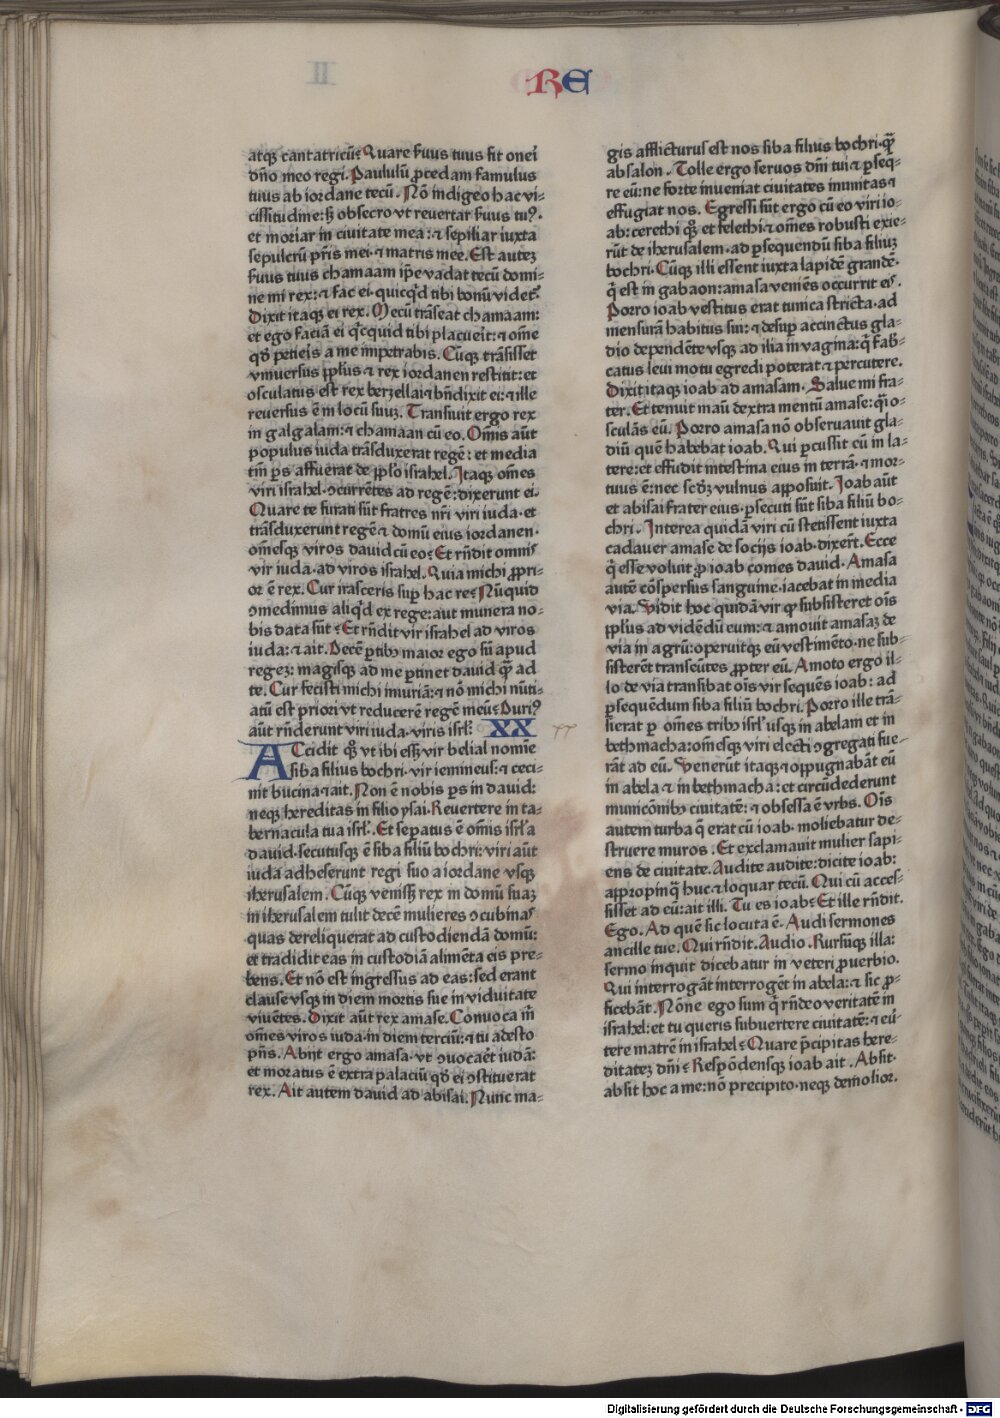 RE
atqꝫ cantatricū? Quare ẜuus tuus sit oneri
dño meo regi. Paululū ꝓcedam famulus
tuus ab iordane tecū. Nō indigeo hac vi-
cissitudine: sꝫ obsecro vt reuertar ẜuus tuꝰ.
et moriar in ciuitate mea: ⁊ sepiliar iuxta
sepulcrū pr̄is mei. ⁊ matris mee. Est autez
ẜuus tuus chamaam ip̄e vadat tecū domi-
ne mi rex: ⁊ fac ei. quicqͥd tibi bonū videt᷑.
Dixit itaqꝫ ei rex. Mecū trāseat chamaam:
et ego faciā ei qͥcquid tibi placuerit: ⁊ om̄e
qd̓ petieris a me impetrabis. Cūqꝫ trāsisset
vniuersus pplus ⁊ rex iordanen restitit: et
osculatus est rex berzellai ⁊ bn̄dixit ei: ⁊ ille
reuersus ē in locū suuꝫ. Transiuit ergo rex
in galgalam: ⁊ chamaan cū eo. Om̄is aūt
populus iuda trāsduxerat regē: et media
tm̄ ꝑs affuerat de pplo israhel. Itaqꝫ om̄es
viri israhel. ꝯcurrētes ad regē: dixerunt ei.
Quare te furati sūt fratres nr̄i viri iuda. et
trāsduxerunt regē ⁊ domū eius iordanen.
om̄esqꝫ viros dauid cū eo? Et rn̄dit omnis
vir iuda. ad viros israhel. Quia michi ꝓpri-
or ē rex. Cur irasceris suꝑ hac re? Nūquid
ꝯmedimus aliqͥd ex rege: aut munera no-
bis data sūt? Et rn̄dit vir israhel ad viros
iuda: ⁊ ait. Decē ꝑtibꝫ maior ego sū apud
regeꝫ: magisqꝫ ad me ꝑtinet dauid qͣ̄ ad
te. Cur fecisti michi iniuriā: ⁊ nō michi nūti-
atū est priori vt reducerē regē meū? Duriꝰ
aūt rn̄derunt viri iuda. viris isrl̓. XX
Accidit qͦqꝫ vt ibi eēt vir belial nomīe
siba filius bochri. vir iemineus: ⁊ ceci-
nit bucina ⁊ ait. Non ē nobis ꝑs in dauid:
neqꝫ hereditas in filio ysai. Reuertere in ta-
bernacula tua isrl̓. Et seꝑatus ē om̄is isrl̓ a
dauid. secutusqꝫ ē siba filiū bochri: viri aūt
iuda adheserunt regi suo a iordane vsqꝫ
iherusalem. Cūqꝫ venisset rex in domū suaꝫ
in iherusalem tulit decē mulieres ꝯcubinas
quas dereliquerat ad custodiendā domū:
et tradidit eas in custodiā alimēta eis pre-
bens. Et nō est ingressus ad eas: sed erant
clause vsqꝫ in diem mortis sue in viduitate
viuētes. Dixit aūt rex amase. Conuoca m̄
om̄es viros iuda. in diem terciū: ⁊ tu adesto
pn̄s. Abijt ergo amasa. vt ꝯuocaret iudā:
et moratus ē extra palaciū qd̓ ei ꝯstituerat
rex. Ait autem dauid ad abisai. Nunc ma-
gis afflicturus est nos siba filius bochri. qͣ̄
absalon. Tolle ergo seruos dn̄i tui ⁊ ꝑseq-
re eū: ne forte inueniat ciuitates munitas ⁊
effugiat nos. Egressi sūt ergo cū eo viri io-
ab: cerethi qͦqꝫ et felethi ⁊ om̄es robusti exie-
rūt de iherusalem. ad ꝑsequendū siba filiuꝫ
bochri. Cūqꝫ illi essent iuxta lapidē grandē.
q̄ est in gabaon: amasa veniēs occurrit eis.
Porro ioab vestitus erat tunica stricta. ad
mensurā habitus sui: ⁊ desuꝑ accinctus gla-
dio dependēte vsqꝫ ad ilia in vagina: q̄ fab-
catus leui motu egredi poterat ⁊ percutere.
Dixit itaqꝫ ioab ad amasam. Salue mi fra-
ter. Et tenuit manu dextra mentū amase: q̄si o-
sculās eū. Porro amasa nō obseruauit gla-
diū quē habebat ioab. Qui ꝑcussit eū in la-
tere: et effudit intestina eius in terrā. ⁊ mor-
tuus ē: nec secd̓ꝫ vulnus apposuit. Ioab aūt
et abisai frater eius. ꝑsecuti sūt siba filiū bo-
chri. Interea quidā viri cū stetissent iuxta
cadauer amase de socijs ioab. dixerūt. Ecce
q̄ esse voluit ꝓ ioab comes dauid. Amasa
autē cōspersus sanguine. iacebat in media
via. Vidit hoc quidā vir ꝙ subsisteret oīs
pplus ad vidēdū eum: ⁊ amouit amasaꝫ de
via in agrū: operuitqꝫ eū vestimēto. ne sub-
sisterēt transeūtes ꝓpter eū. Amoto ergo il-
lo de via transibat oīs vir sequēs ioab: ad
ꝑsequēdum siba filiū bochri. Porro ille trā-
sierat ꝑ om̄es tribꝫ isrl̓ usqꝫ in abelam et in
bethmacha: om̄esqꝫ viri electi ꝯgregati fue-
rāt ad eū. Venerūt itaqꝫ ⁊ oppugnabāt eū
in abela ⁊ in bethmacha: et circūdederunt
municōnibꝫ ciuitatē: ⁊ obsessa ē vrbs. Oīs
autem turba q̄ erat cū ioab. moliebatur de-
struere muros. Et exclamauit mulier sapi-
ens de ciuitate. Audite audite: dicite ioab:
appropinq̄ huc ⁊ loquar tecū. Qui cū acces-
sisset ad eū: ait illi. Tu es ioab? Et ille rn̄dit.
Ego. Ad quē sic locuta ē. Audi sermones
ancille tue. Qui rn̄dit. Audio. Rursūqꝫ illa:
sermo inquit dicebatur in veteri ꝓuerbio.
Qui interrogāt interrogēt in abela: ⁊ sic ꝓ-
ficebāt. Nōne ego sum q̄ rn̄deo veritatē in
israhel: et tu queris subuertere ciuitatē: ⁊ eu̓-
tere matrē in israhel? Quare p̄cipitas here-
ditateꝫ dn̄i? Respōdensqꝫ ioab ait. Absit.
absit hoc a me: nō precipito. neqꝫ demolior.
Digitalisierung gefördert durch die Deutsche Forschungsgemeinschaft - DFG